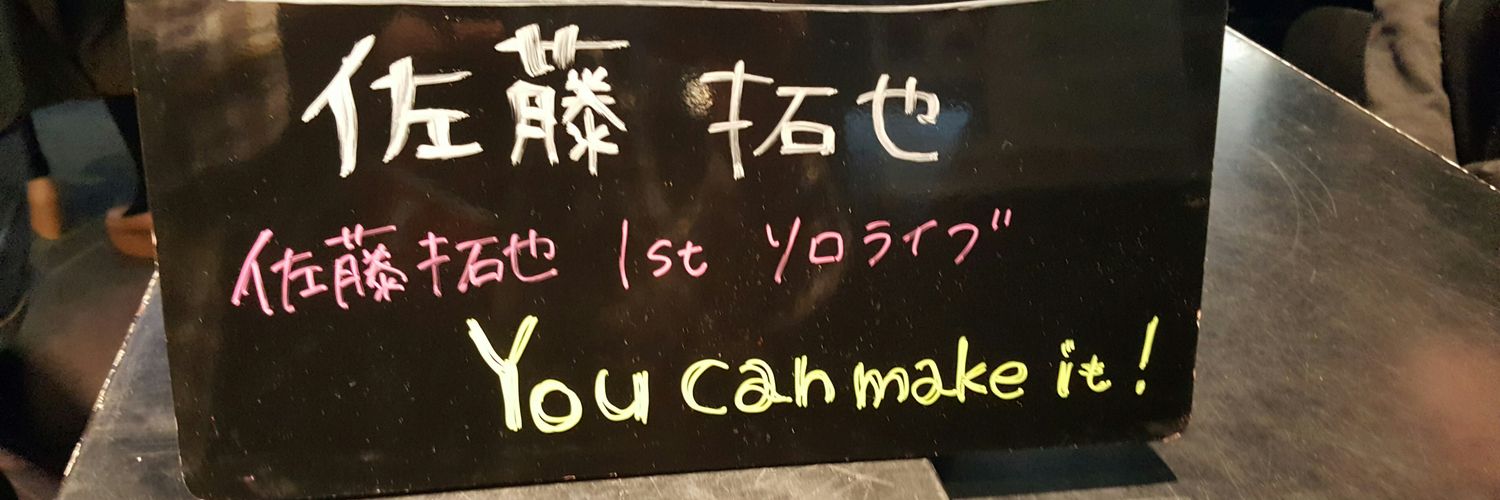 佐藤拓也
佐藤拓也 1st ソロライブ
You can make it!